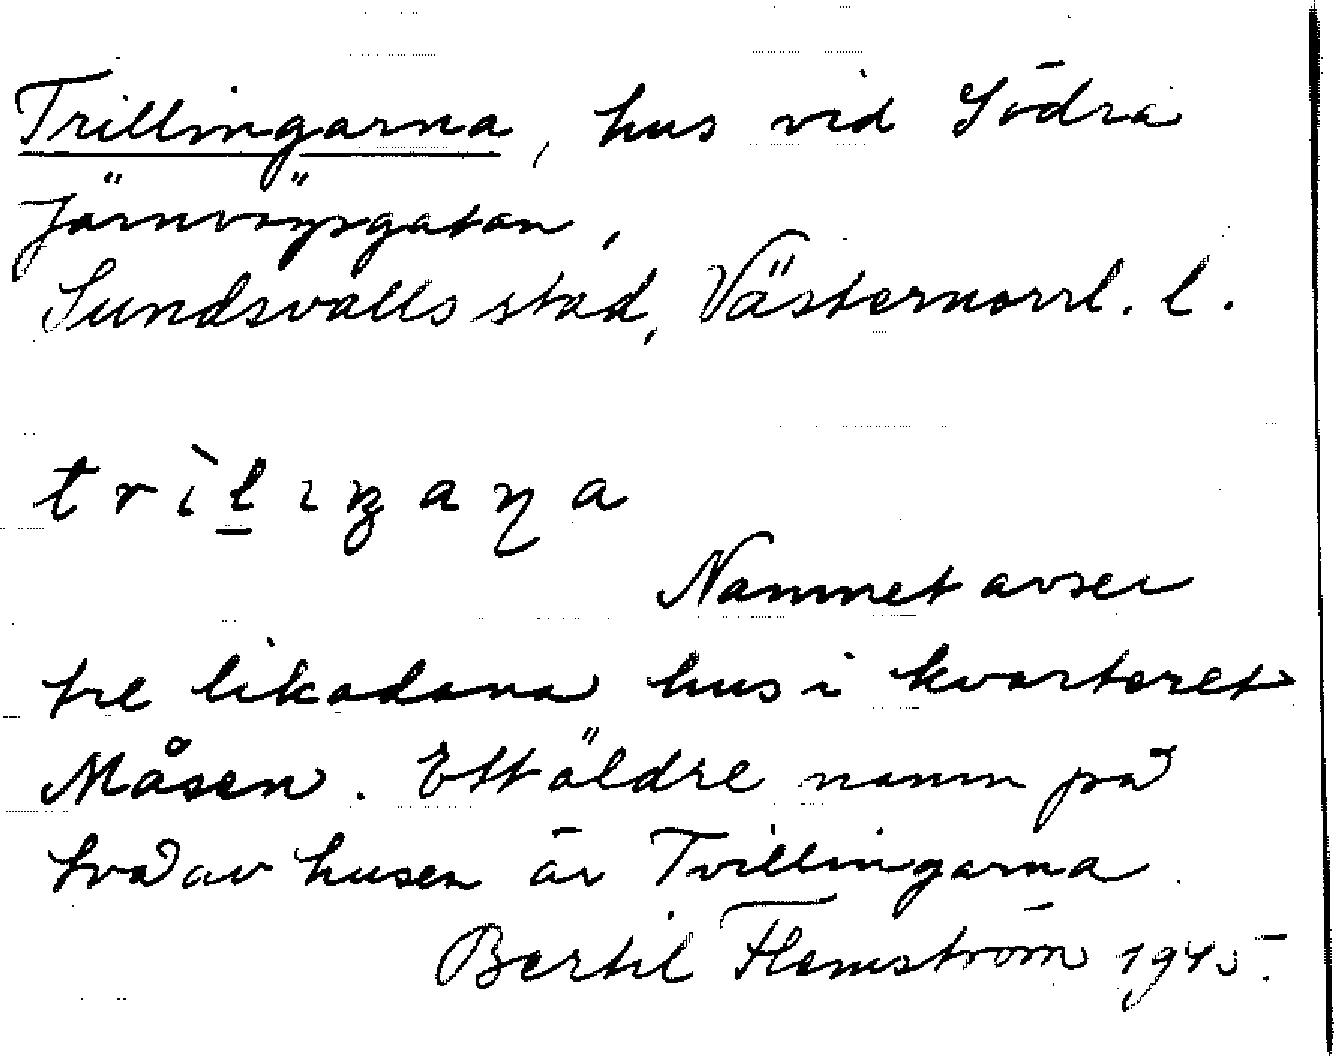 Trillingarna, hus vid Södra
Järnvägsgatan,
Sundsvalls stad, Västernorrl. l.
trìl̲ıŋaɳa
Namnet avser
tre likadana hus i kvarteret
Måsen. Ett äldre namn på
två av husen är Tvillingarna.
Bertil Flemström 1945.